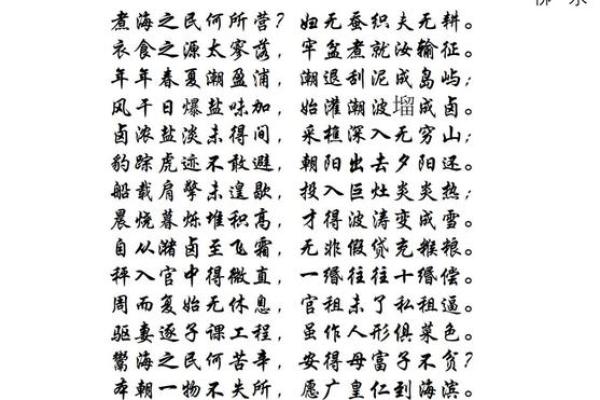 煮海之民何所营？妇无蚕织夫无耕。
衣食之源太寥落，牢盆煮就汝输征。
年年春夏潮盈浦，潮退刮泥成岛屿；
风干日爆盐味加，始灌潮波塯成卤。
卤浓盐淡未得间，采樵深入无穷山；
豹踪虎迹不敢避，朝阳出去夕阳还。
船载肩擎未遑歇，投入巨灶炎炎热；
晨烧暮烁堆积高，才得波涛变成雪。
自从潴卤至飞霜，无非假贷充糇粮。
秤入官中得微直，一缗往往十缗偿。
周而复始无休息，官租未了私租逼。
驱妻逐子课工程，虽作人形俱菜色。
鬻海之民何苦辛，安得母富子不贫？
本朝一物不失所，愿广皇仁到海滨。